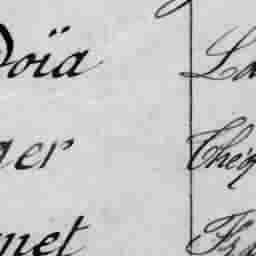 Doïa La
ger Théo
net Fra